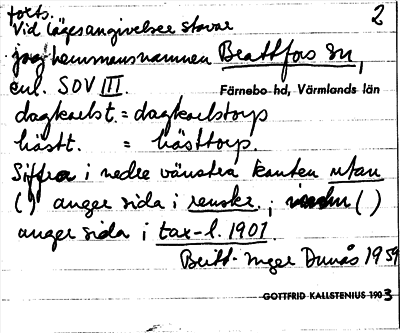 forts.
2
Vid lägesangivelser stavar
jag hemmansnamnen Brattfors sn,
enl. SOV III.
Färnebo hd, Värmlands län
dagkarlst. = dagkarlstorp
hästt. = hästtorp.
Siffra i nedre vänstra kanten utan
() anger sida i renskr.; inom ()
anger sida i tax-l. 1901.
Britt-Inger Dunås 1959
GOTTFRID KALLSTENIUS 1903